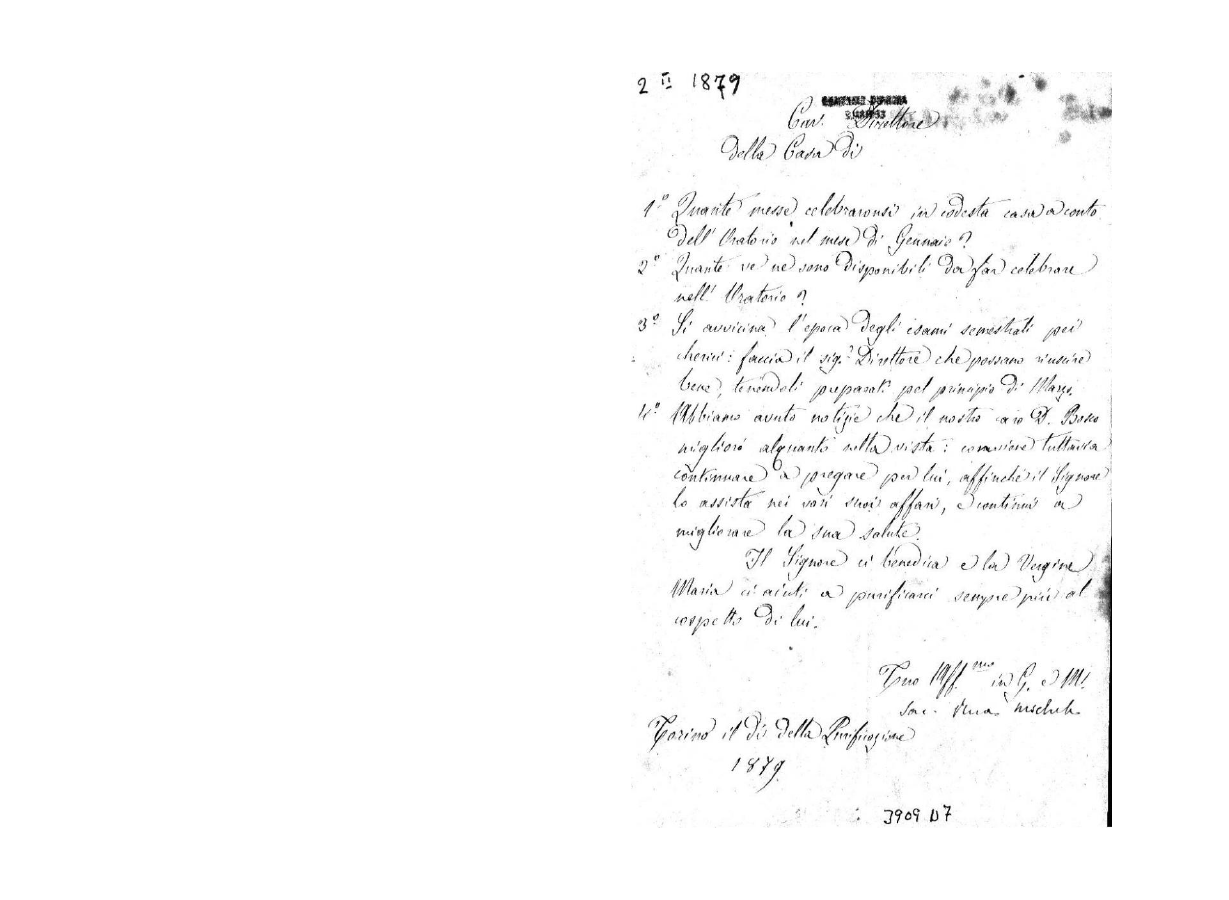 2 II 1879
Car. Direttore
della Casa di
1º Quante messe celebraronsi in codesta casa a conto
dell' Oratorio nel mese di Gennaio?
2º Quante ve ne sono disponibili da far celebrare
nell' Oratorio?
3º Si avvicina l'epoca degli esami semestrali pei
cherici: faccia il sig.r Direttore che possano riuscire
bene, tenendoli preparati pel principio di Marzo.
4º Abbiamo avuto notizie che il nostro caro D. Bosco
migliorò alquanto nella vista: conviene tuttavia
continuare a pregare per lui, affinchè il Signore
lo assista nei vari suoi affari, e continui a
migliorare la sua salute.
Il Signore ci benedica e la Vergine
Maria ci aiuti a purificarci sempre più al
cospetto di lui.
Tuo Aff.mo in G. e M.
Sac.
Torino il dì della Purificazione
1879.
3909 D7